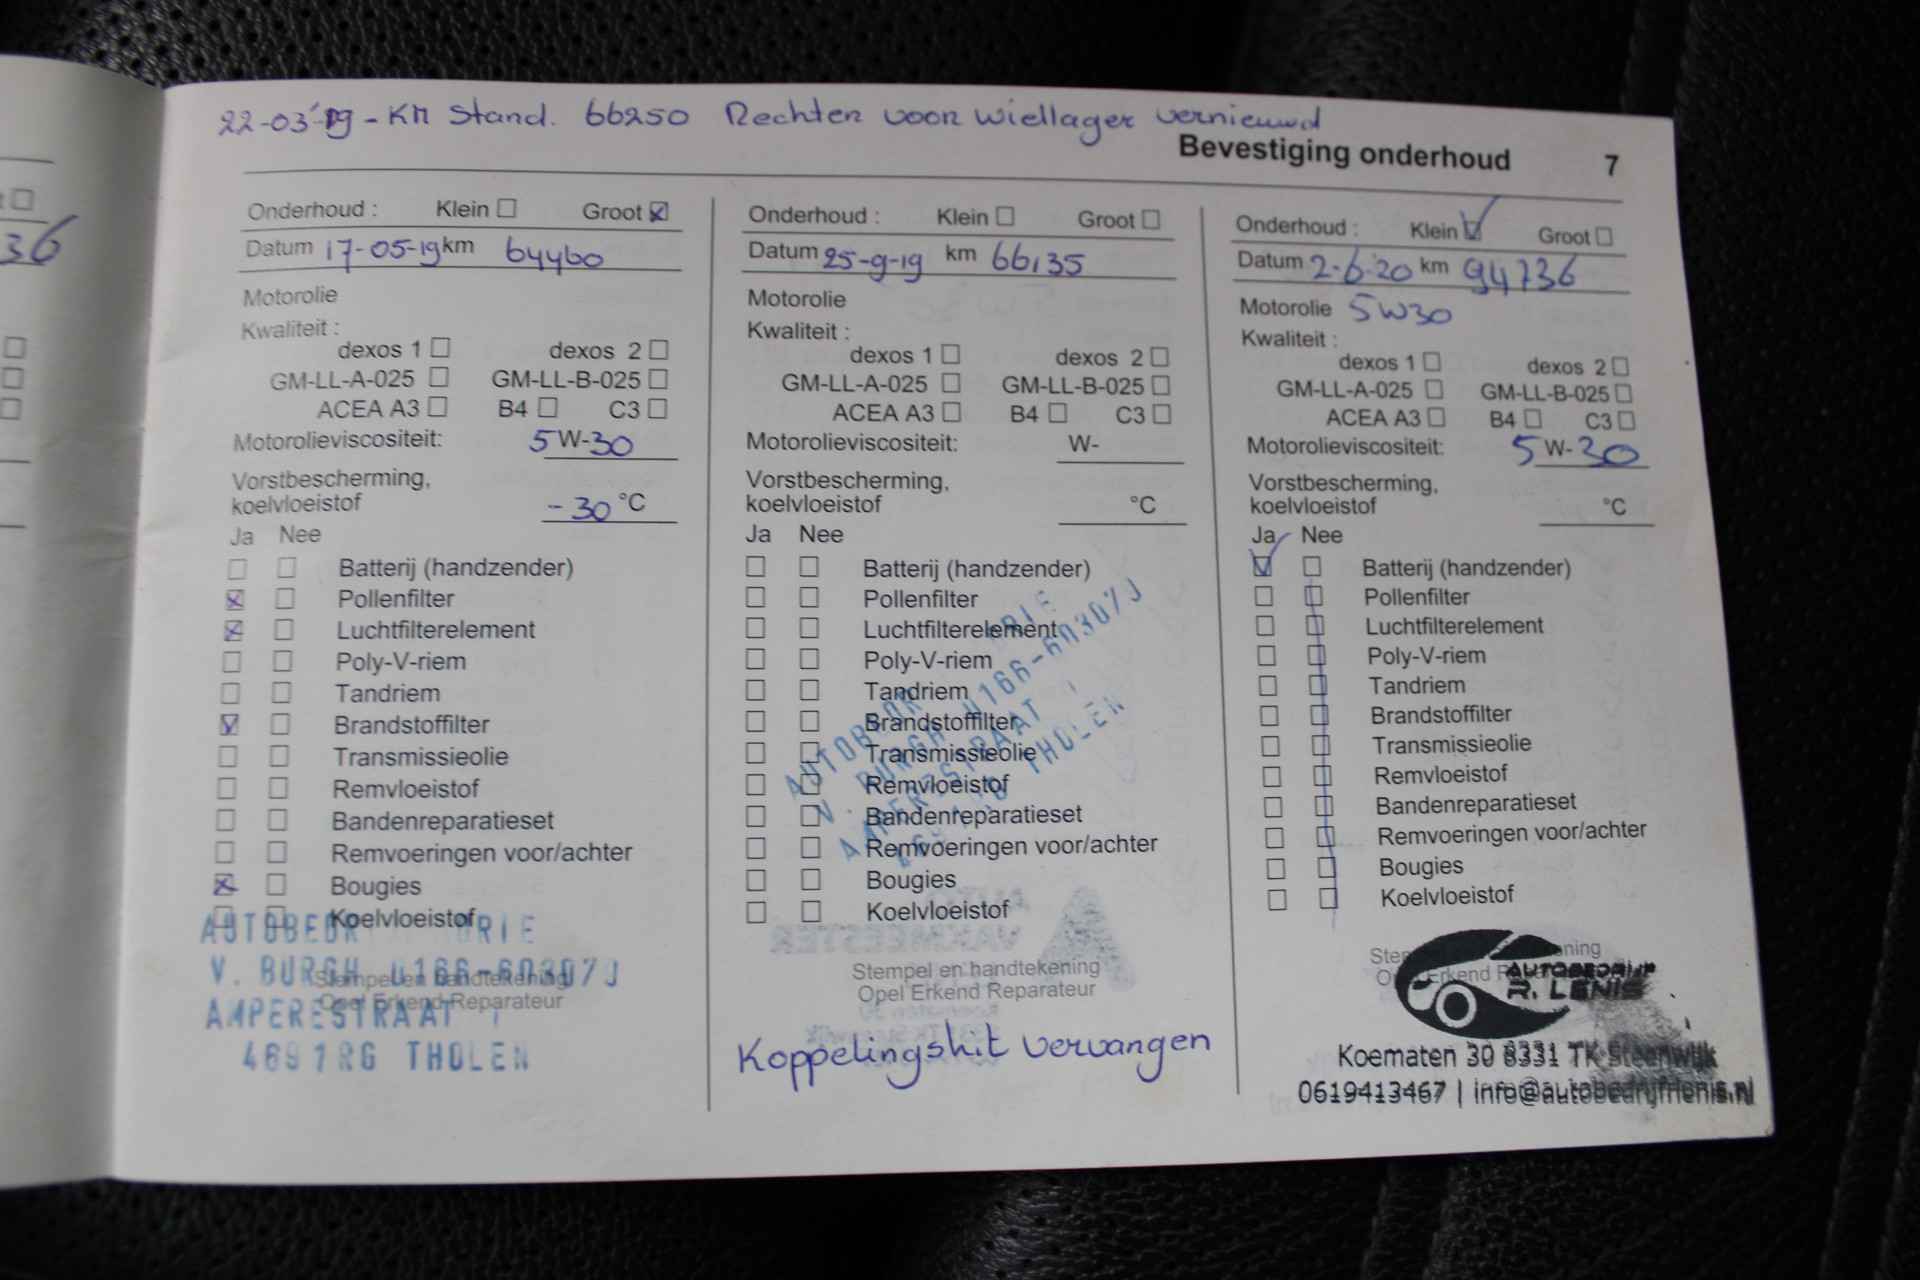 22-03-19 - KM Stand. 66250 Rechter voor wiellager vernieuwd
Bevestiging onderhoud 7
36
Onderhoud : Klein Groot
Datum 17-05-19 km 64460
Motorolie
Kwaliteit :
dexos 1 dexos 2
GM-LL-A-025 GM-LL-B-025
ACEA A3 B4 C3
Motorolieviscositeit: 5 W-30
Vorstbescherming,
koelvloeistof -30 °C
Ja Nee
Batterij (handzender)
Pollenfilter
Luchtfilterelement
Poly-V-riem
Tandriem
Brandstoffilter
Transmissieolie
Remvloeistof
Bandenreparatieset
Remvoeringen voor/achter
Bougies
Koelvloeistof
Stempel en handtekening
Opel Erkend Reparateur
V. BURGH 0166-603073
AMPERESTRAAT 1
4691RG THOLEN
Onderhoud : Klein Groot
Datum 25-9-19 km 66135
Motorolie
Kwaliteit :
dexos 1 dexos 2
GM-LL-A-025 GM-LL-B-025
ACEA A3 B4 C3
Motorolieviscositeit: W-
Vorstbescherming,
koelvloeistof °C
Ja Nee
Batterij (handzender)
Pollenfilter
Luchtfilterelement
Poly-V-riem
Tandriem
Brandstoffilter
Transmissieolie
Remvloeistof
Bandenreparatieset
Remvoeringen voor/achter
Bougies
Koelvloeistof
V. BURGH 0166-603073
AMPERESTRAAT 1
THOLEN
Stempel en handtekening
Opel Erkend Reparateur
Koppelingskit vervangen
Onderhoud : Klein Groot
Datum 2-6-20 km 94736
Motorolie 5W30
Kwaliteit :
dexos 1 dexos 2
GM-LL-A-025 GM-LL-B-025
ACEA A3 B4 C3
Motorolieviscositeit: 5 W-30
Vorstbescherming,
koelvloeistof °C
Ja Nee
Batterij (handzender)
Pollenfilter
Luchtfilterelement
Poly-V-riem
Tandriem
Brandstoffilter
Transmissieolie
Remvloeistof
Bandenreparatieset
Remvoeringen voor/achter
Bougies
Koelvloeistof
AUTOBEDRIJF
R. LENIS
Koematen 30 8331 TK Steenwijk
0619413467 | info@autobedrijfrlenis.nl